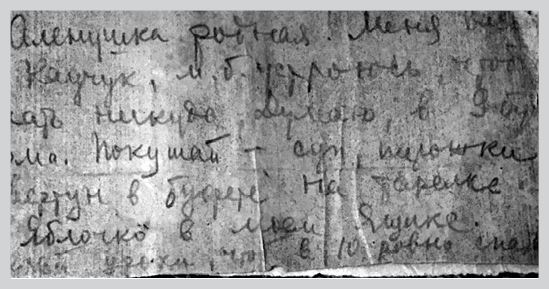 Аленушка родная. Меня
Каучук, м. б. устроюсь, чтоб
никуда, думаю, в 9
ома. Покушай – суп, пирожки
в буфете на тарелке
Яблочко в моем ящике.
уроки, что в 10 ровно